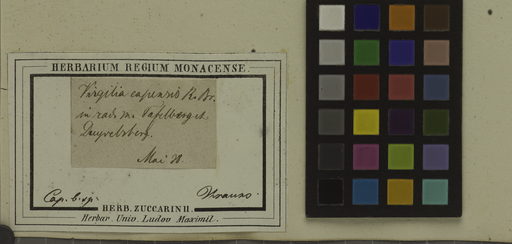 HERBARIUM REGIUM MONACENSE.
Virgilia capensis R. Br.
in rad. m. Tafelberg et
Duyvelsberg.
Mai 38.
Cap. b. sp.
Krauss.
HERB. ZUCCARINII.
Herbar. Univ. Ludov. Maximil.